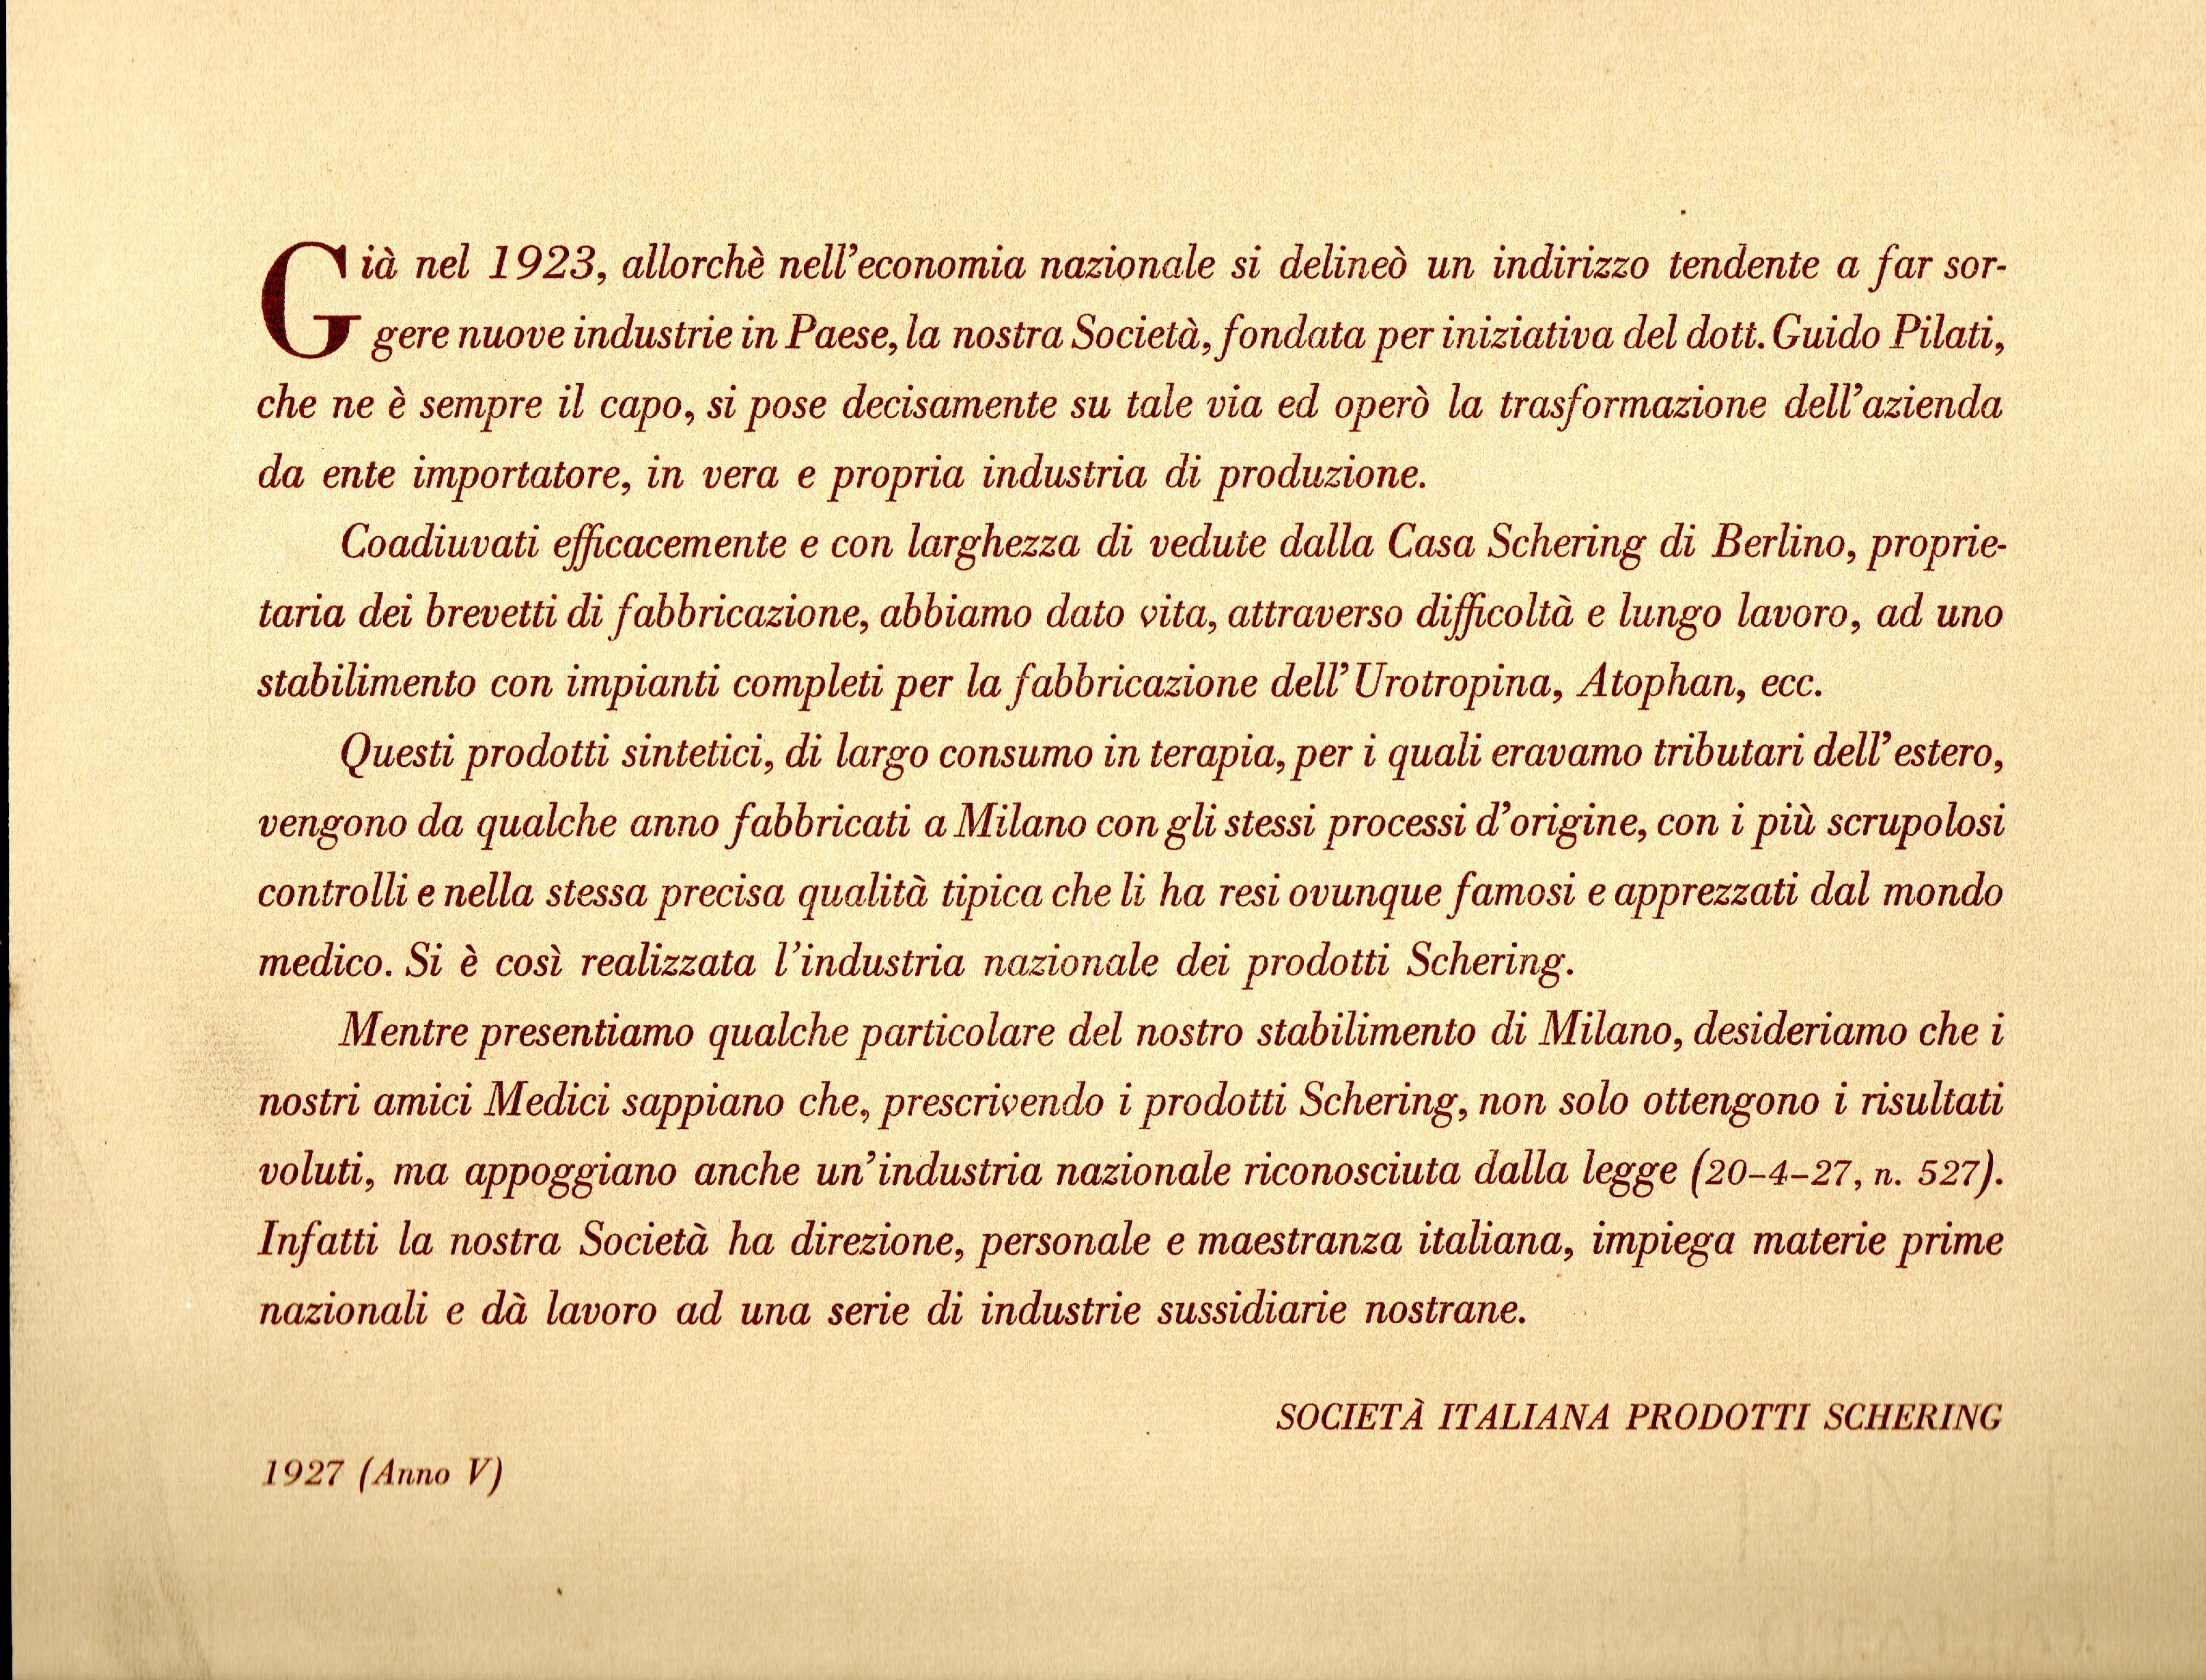 Già nel 1923, allorchè nell'economia nazionale si delineò un indirizzo tendente a far sor-
gere nuove industrie in Paese, la nostra Società, fondata per iniziativa del dott. Guido Pilati,
che ne è sempre il capo, si pose decisamente su tale via ed operò la trasformazione dell'azienda
da ente importatore, in vera e propria industria di produzione.
Coadiuvati efficacemente e con larghezza di vedute dalla Casa Schering di Berlino, proprie-
taria dei brevetti di fabbricazione, abbiamo dato vita, attraverso difficoltà e lungo lavoro, ad uno
stabilimento con impianti completi per la fabbricazione dell'Urotropina, Atophan, ecc.
Questi prodotti sintetici, di largo consumo in terapia, per i quali eravamo tributari dell'estero,
vengono da qualche anno fabbricati a Milano con gli stessi processi d'origine, con i più scrupolosi
controlli e nella stessa precisa qualità tipica che li ha resi ovunque famosi e apprezzati dal mondo
medico. Si è così realizzata l'industria nazionale dei prodotti Schering.
Mentre presentiamo qualche particolare del nostro stabilimento di Milano, desideriamo che i
nostri amici Medici sappiano che, prescrivendo i prodotti Schering, non solo ottengono i risultati
voluti, ma appoggiano anche un'industria nazionale riconosciuta dalla legge (20-4-27, n. 527).
Infatti la nostra Società ha direzione, personale e maestranza italiana, impiega materie prime
nazionali e dà lavoro ad una serie di industrie sussidiarie nostrane.
SOCIETÀ ITALIANA PRODOTTI SCHERING
1927 (Anno V)